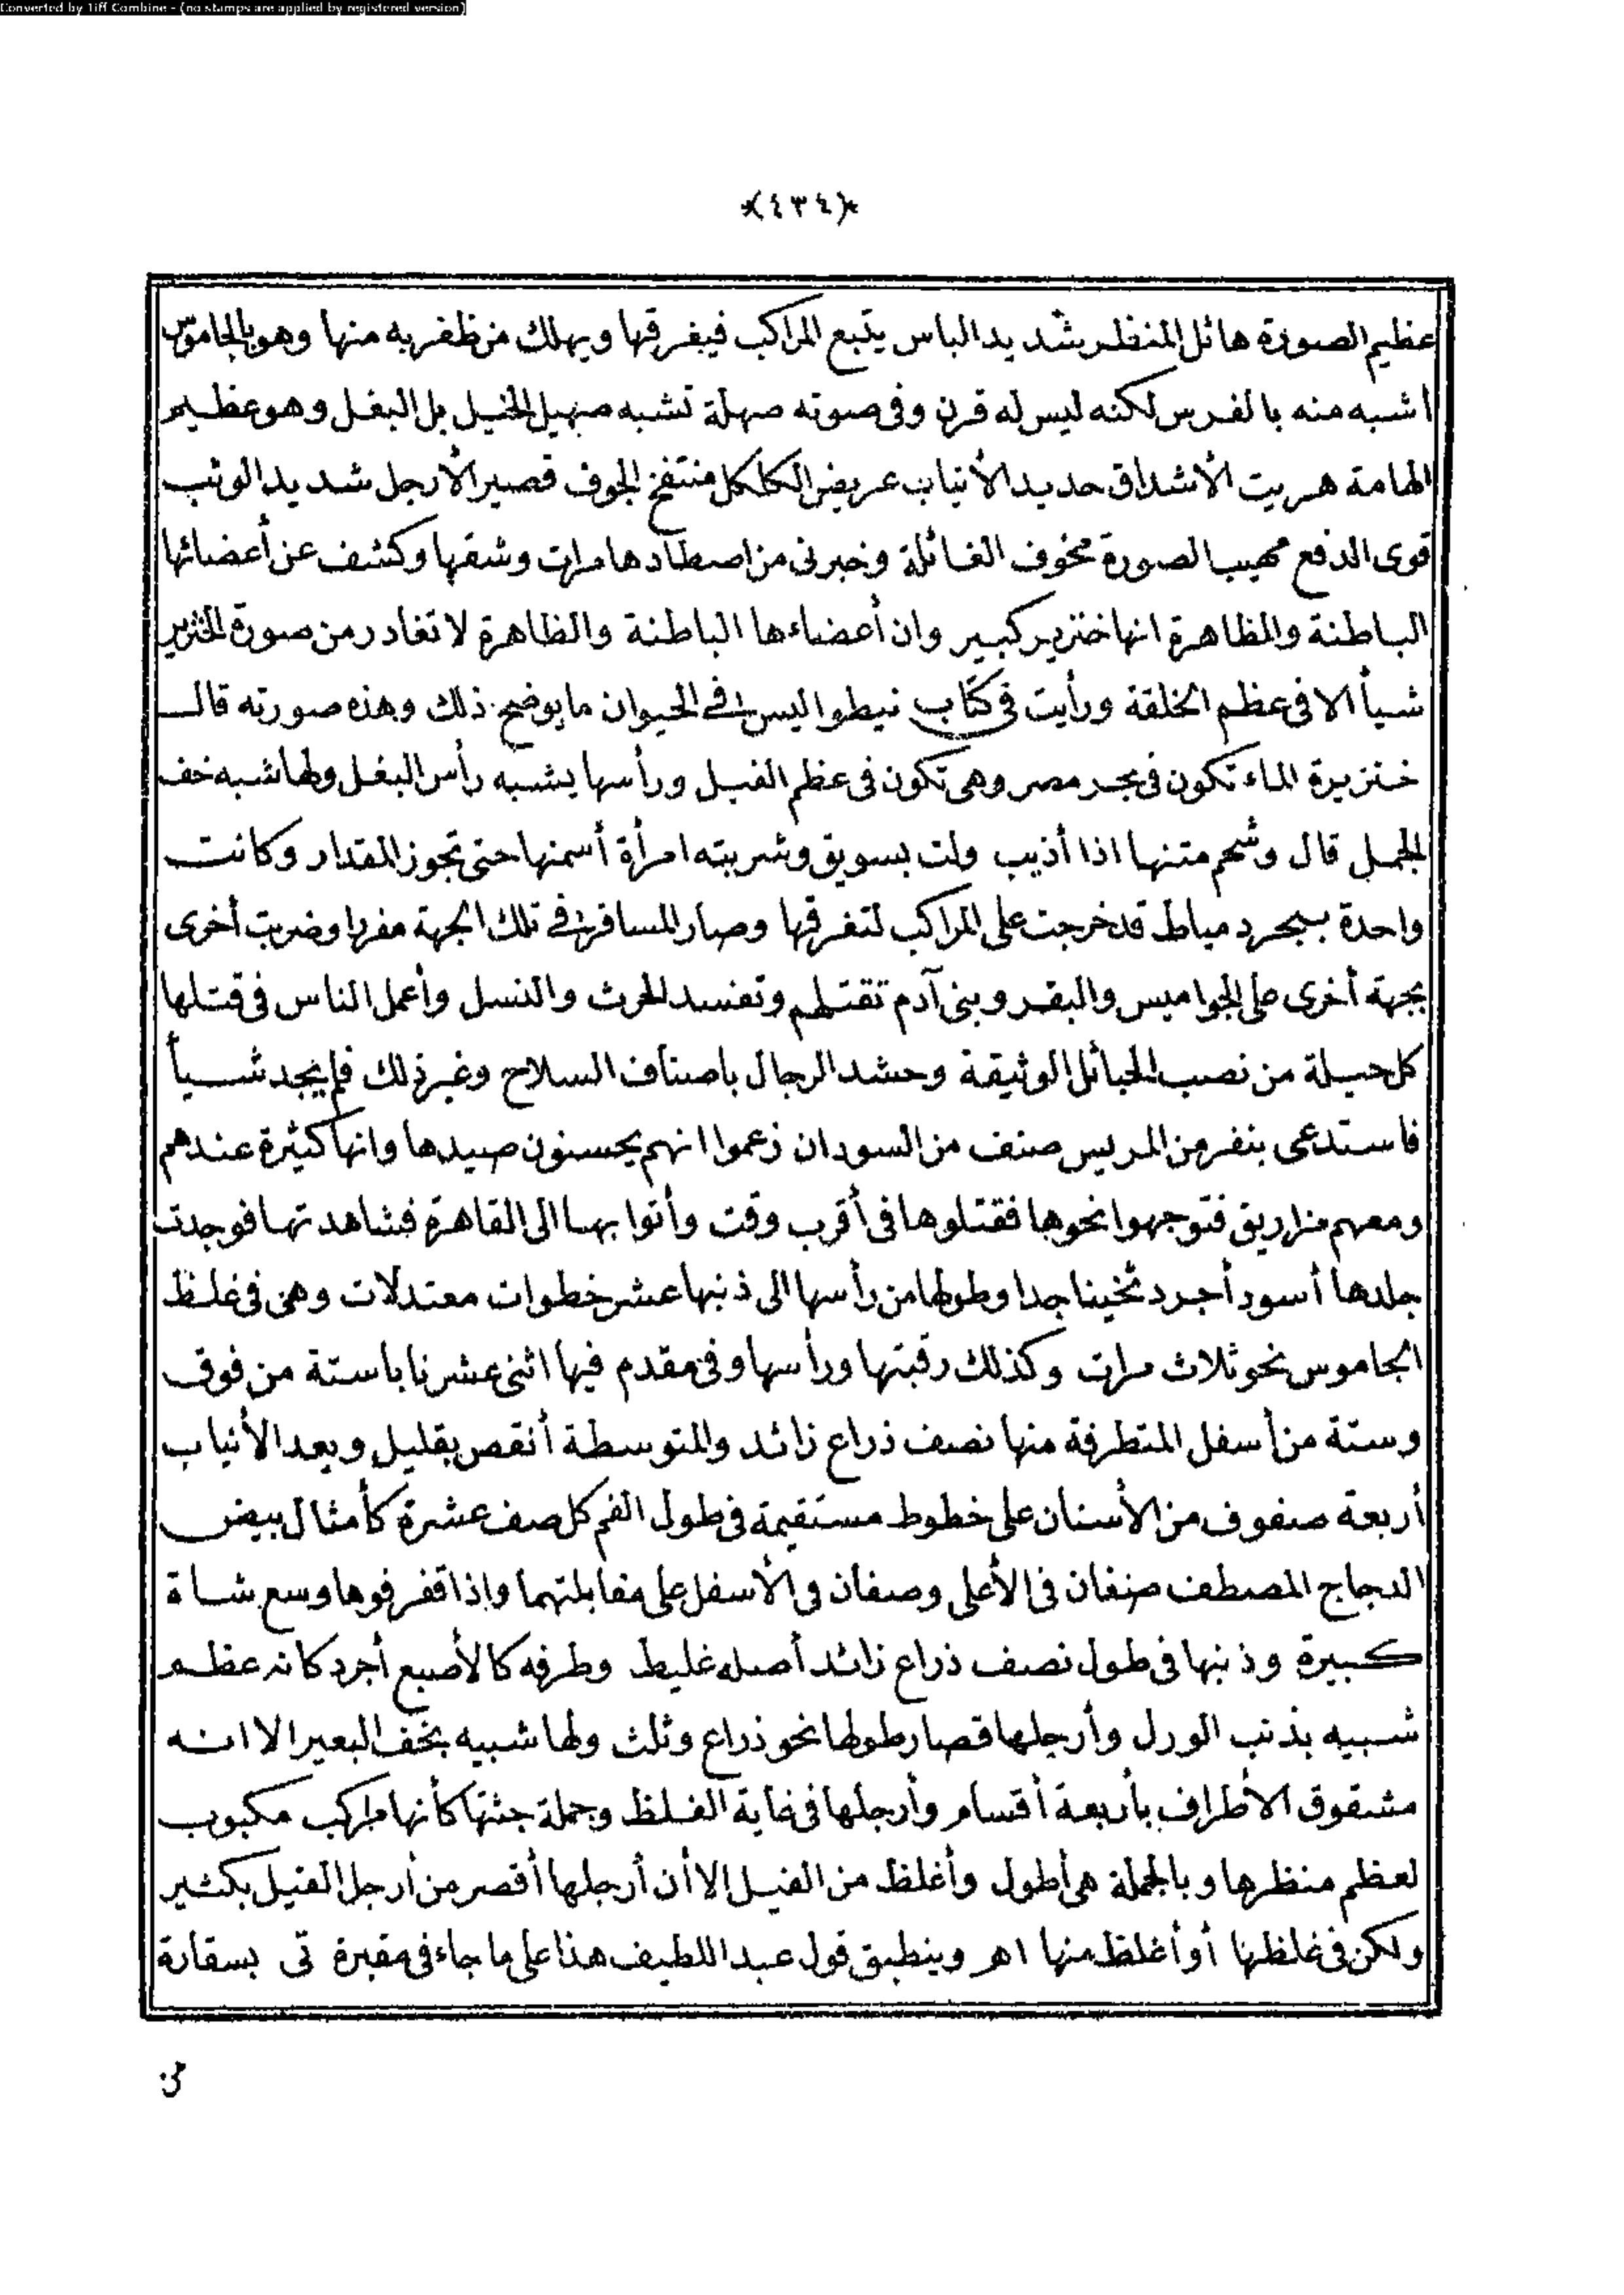 Converted by Tiff Combine - (no stamps are applied by registered version)
*(٤٣٤)*
عظيم الصورة هائل المنظر شديد الباس يتبع المراكب فيغرقها ويهلك من ظفر به منها وهو بالجاموس
اشبه منه بالفرس لكنه ليس له قرن وفى صوته صهلة تشبه صهيل الخيل بل البغل وهو عظيم
الهامة هريت الأشداق حديد الأنياب عريض الكلكل منتفخ الجوف قصير الأرجل شديد الوثب
قوى الدفع مهيب الصورة مخوف الغائلة وخبرنى من اصطادها مرات وشقها وكشف عن أعضائها
الباطنة والظاهرة انها خنزير كبير وان أعضاءها الباطنة والظاهرة لا تغادر من صورة الخنزير
شيأ الا فى عظم الخلقة ورأيت فى كتاب نيطواليس فى الحيوان ما يوضح ذلك وهذه صورته قال
خنزيرة الماء تكون فى بحر مصر وهى تكون فى عظم الفيل ورأسها يشبه رأس البغل ولها شبه خف
الجمل قال وشحم متنها اذا أذيب ولت بسويق وشربته امرأة أسمنها حتى تجوز المقدار وكانت
واحدة ببحر دمياط قد خرجت على المراكب لتغرقها وصار المسافر فى تلك الجهة مغررا وضربت أخرى
بجهة أخرى على الجواميس والبقر وبنى آدم تقتلهم وتفسد الحرث والنسل وأعمل الناس فى قتلها
كل حيلة من نصب الحبائل الوثيقة وحشد الرجال باصناف السلاح وغير ذلك فلم يجد شيأ
فاستدعى بنفر من المريس صنف من السودان زعموا انهم يحسنون صيدها وانها كثيرة عندهم
ومعهم مزاريق فتوجهوا نحوها فقتلوها فى أقرب وقت وأتوا بها الى القاهرة فشاهدتها فوجدت
جلدها أسود أجرد ثخينا جدا وطولها من رأسها الى ذنبها عشر خطوات معتدلات وهى فى غلظ
الجاموس نحو ثلاث مرات وكذلك رقبتها ورأسها وفى مقدم فيها اثنى عشر نابا ستة من فوق
وستة من أسفل المتطرفة منها نصف ذراع زائد والمتوسطة أنقص بقليل وبعد الأنياب
أربعة صفوف من الأسنان على خطوط مستقيمة فى طول الفم كل صف عشرة كأمثال بيض
الدجاج المصطف صنفان فى الأعلى وصفان فى الأسفل على مقابلتهما واذا قفر فوها وسع شاة
كبيرة وذنبها فى طول نصف ذراع زائد أصله غليظ وطرفه كالأصبع أجرد كانه عظم
شبيه بذنب الورل وأرجلها قصار طولها نحو ذراع وثلث ولها شبيه بخف البعير الا انه
مشقوق الأطراف بأربعة أقسام وأرجلها فى غاية الغلظ وجملة جثتها كأنها مركب مكبوب
لعظم منظرها وبالجملة هى أطول وأغلظ من الفيل الا أن أرجلها أقصر من أرجل الفيل بكثير
ولكن فى غلظها أو أغلظ منها اهـ وينطبق قول عبد اللطيف هذا على ما جاء فى مقبرة تى بسقارة